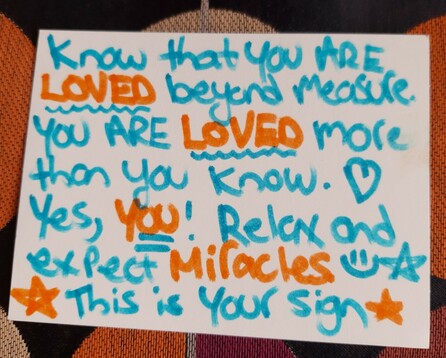 Know that you ARE
LOVED beyond measure.
You ARE LOVED more
than you know. ♡
Yes, YOU! Relax and
expect Miracles ☺☆
☆ This is your sign ☆